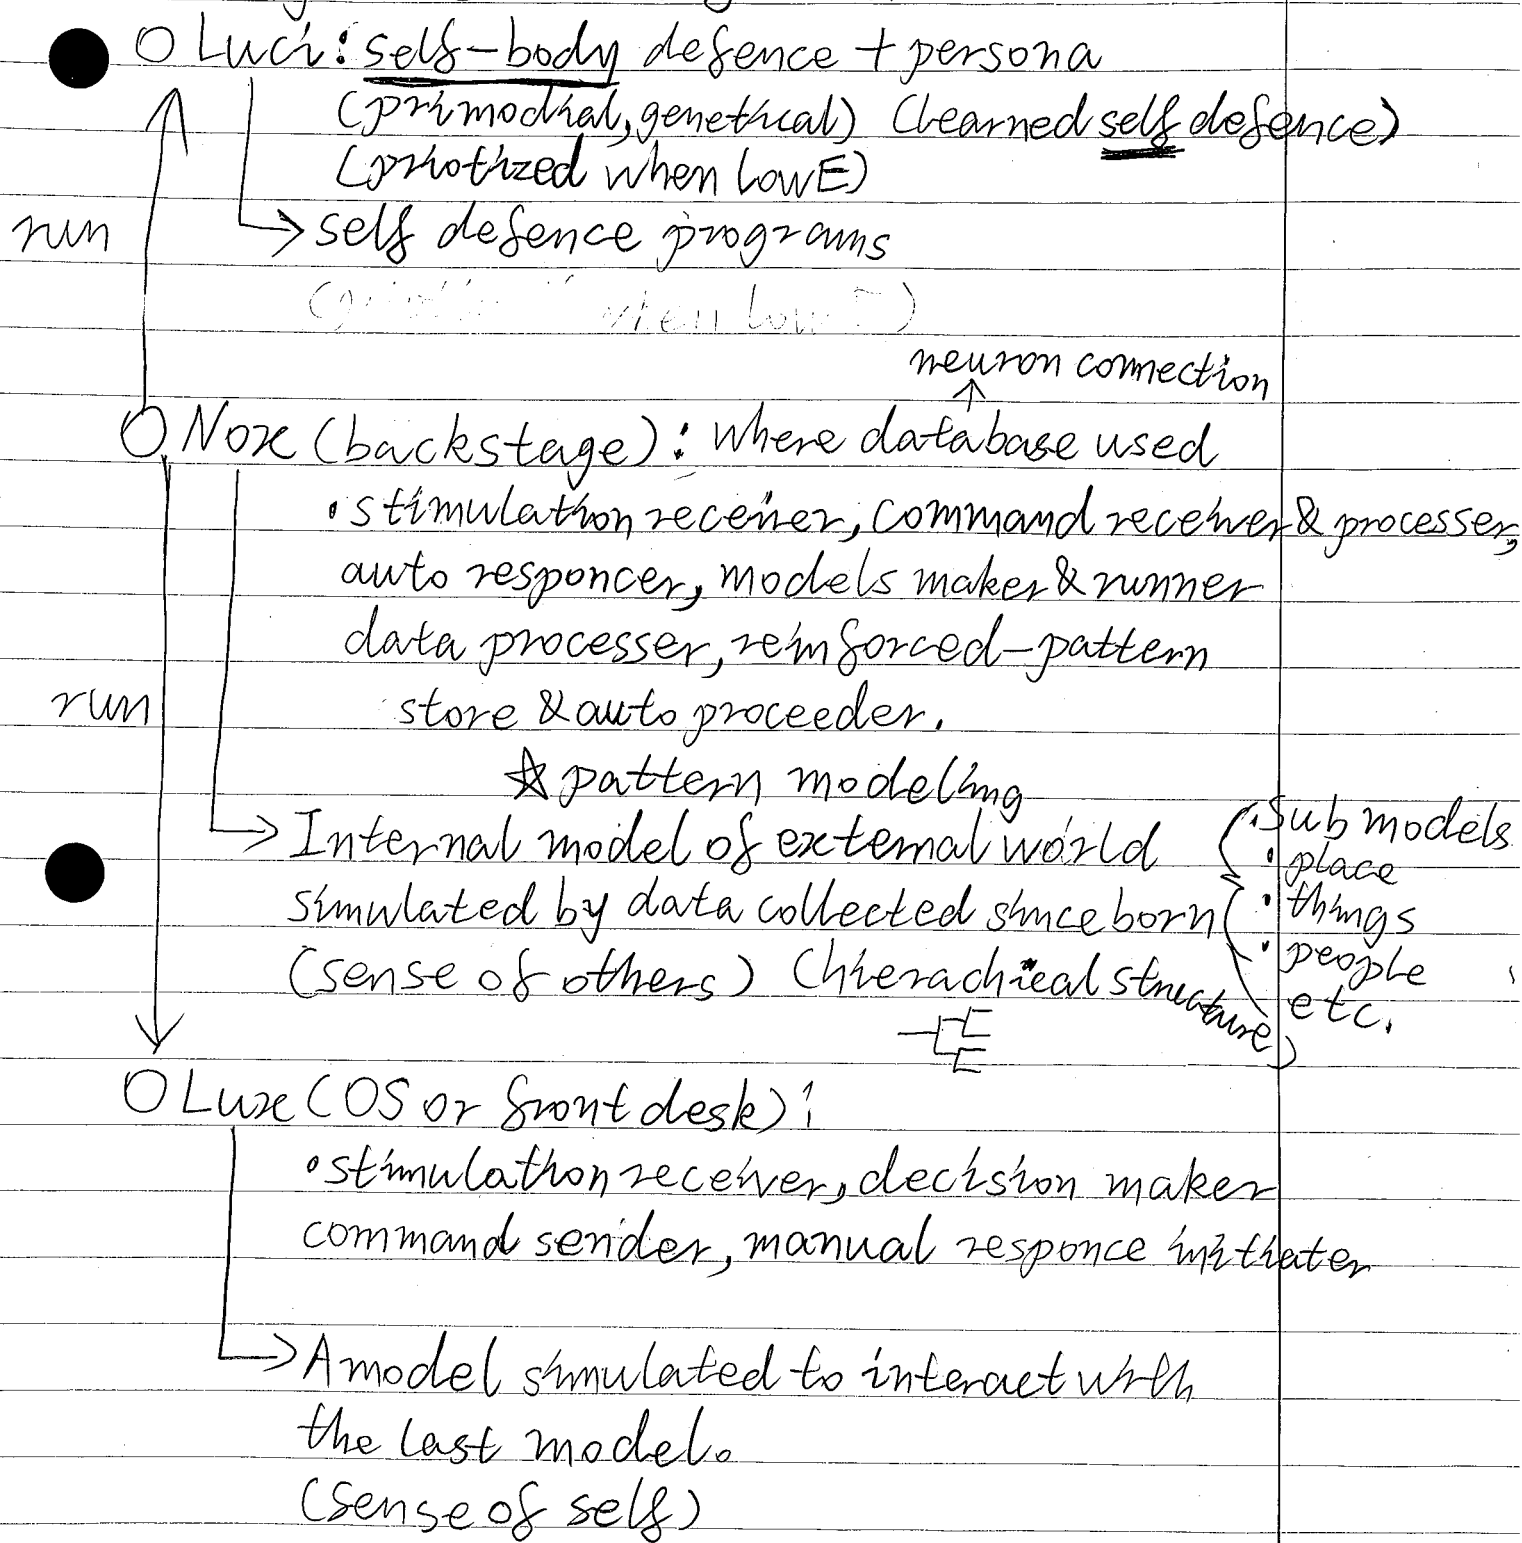 O Luci: self-body defence + persona
(primodial, genetical) (learned self defence)
(priotized when low E)
run
→ self defence programs
when low
neuron connection
↑
O Nox (backstage): where database used
• stimulation receiver, command receiver & processer,
auto responcer, models maker & runner
data processer, reinforced-pattern
run
store & auto proceeder.
☆ pattern modeling
→ Internal model of external world
simulated by data collected since born
(sense of others) (hierachical structure)
• Sub models
• place
• things
• people
etc.
O Lux (OS or front desk):
• stimulation receiver, decision maker
command sender, manual responce initiater
→ A model simulated to interact with
the last model。
(sense of self)